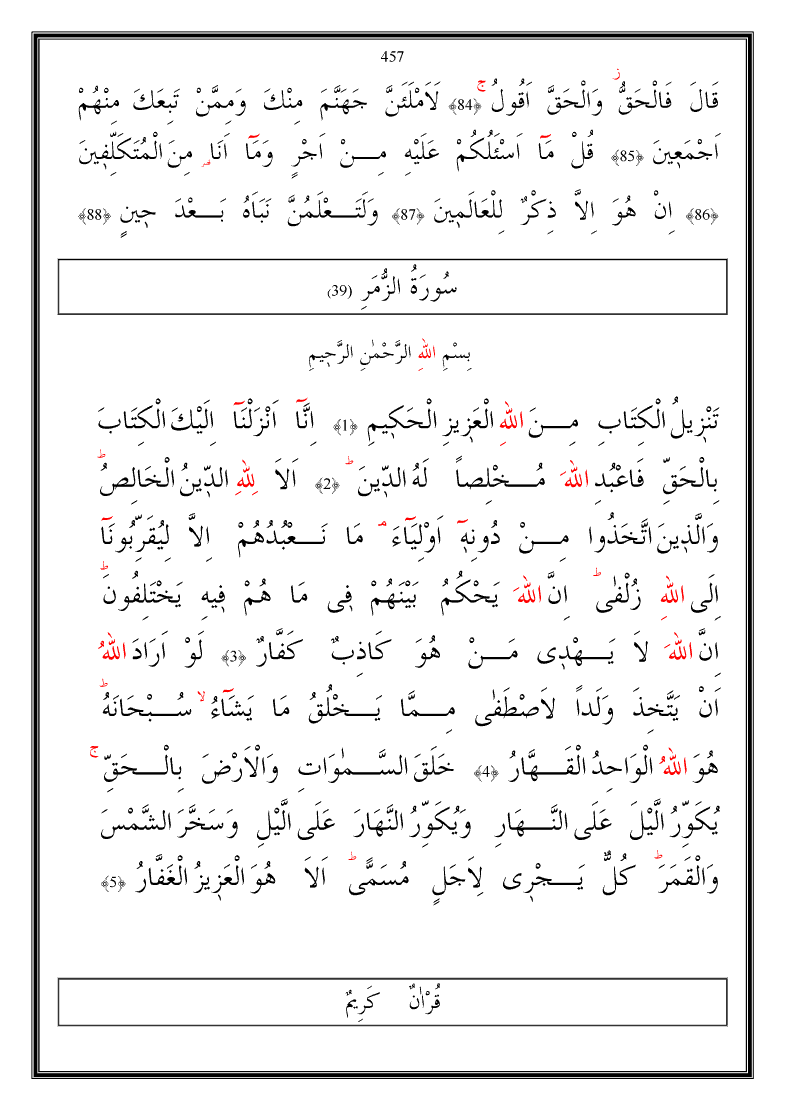 457
قَالَ فَالْحَقُّۘ وَالْحَقَّ اَقُولُۚ ﴿84﴾ لَاَمْلَـَٔنَّ جَهَنَّمَ مِنْكَ وَمِمَّنْ تَبِعَكَ مِنْهُمْ
اَجْمَعٖينَ ﴿85﴾ قُلْ مَٓا اَسْـَٔلُكُمْ عَلَيْهِ مِــنْ اَجْرٍ وَمَٓا اَنَا۬ مِنَ الْمُتَكَلِّفٖينَ
﴿86﴾ اِنْ هُوَ اِلَّا ذِكْرٌ لِلْعَالَمٖينَ ﴿87﴾ وَلَتَــعْلَمُنَّ نَبَاَهُ بَــعْدَ حٖينٍ ﴿88﴾
سُورَةُ الزُّمَرِ (39)
بِسْمِ اللهِ الرَّحْمٰنِ الرَّحٖيمِ
تَنْزٖيلُ الْكِتَابِ مِــنَ اللهِ الْعَزٖيزِ الْحَكٖيمِ ﴿1﴾ اِنَّٓا اَنْزَلْنَٓا اِلَيْكَ الْكِتَابَ
بِالْحَقِّ فَاعْبُدِ اللهَ مُــخْلِصاً لَهُ الدّٖينَؕ ﴿2﴾ اَلَا لِلّٰهِ الدّٖينُ الْخَالِصُؕ
وَالَّذٖينَ اتَّخَذُوا مِــنْ دُونِهٖٓ اَوْلِيَٓاءَۢ مَا نَــعْبُدُهُمْ اِلَّا لِيُقَرِّبُونَٓا
اِلَى اللهِ زُلْفٰىؕ اِنَّ اللهَ يَحْكُمُ بَيْنَهُمْ فٖى مَا هُمْ فٖيهِ يَخْتَلِفُونَؕ
اِنَّ اللهَ لَا يَــهْدٖى مَــنْ هُوَ كَاذِبٌ كَفَّارٌ ﴿3﴾ لَوْ اَرَادَ اللهُ
اَنْ يَتَّخِذَ وَلَداً لَاصْطَفٰى مِــمَّا يَــخْلُقُ مَا يَشَٓاءُۙ سُــبْحَانَهُؕ
هُوَ اللهُ الْوَاحِدُ الْقَــهَّارُ ﴿4﴾ خَلَقَ السَّــمٰوَاتِ وَالْاَرْضَ بِالْــحَقِّۚ
يُكَوِّرُ الَّيْلَ عَلَى النَّــهَارِ وَيُكَوِّرُ النَّهَارَ عَلَى الَّيْلِ وَسَخَّرَ الشَّمْسَ
وَالْقَمَرَؕ كُلٌّ يَــجْرٖى لِاَجَلٍ مُسَمًّىؕ اَلَا هُوَ الْعَزٖيزُ الْغَفَّارُ ﴿5﴾
قُرْاٰنٌ كَرٖيمٌ